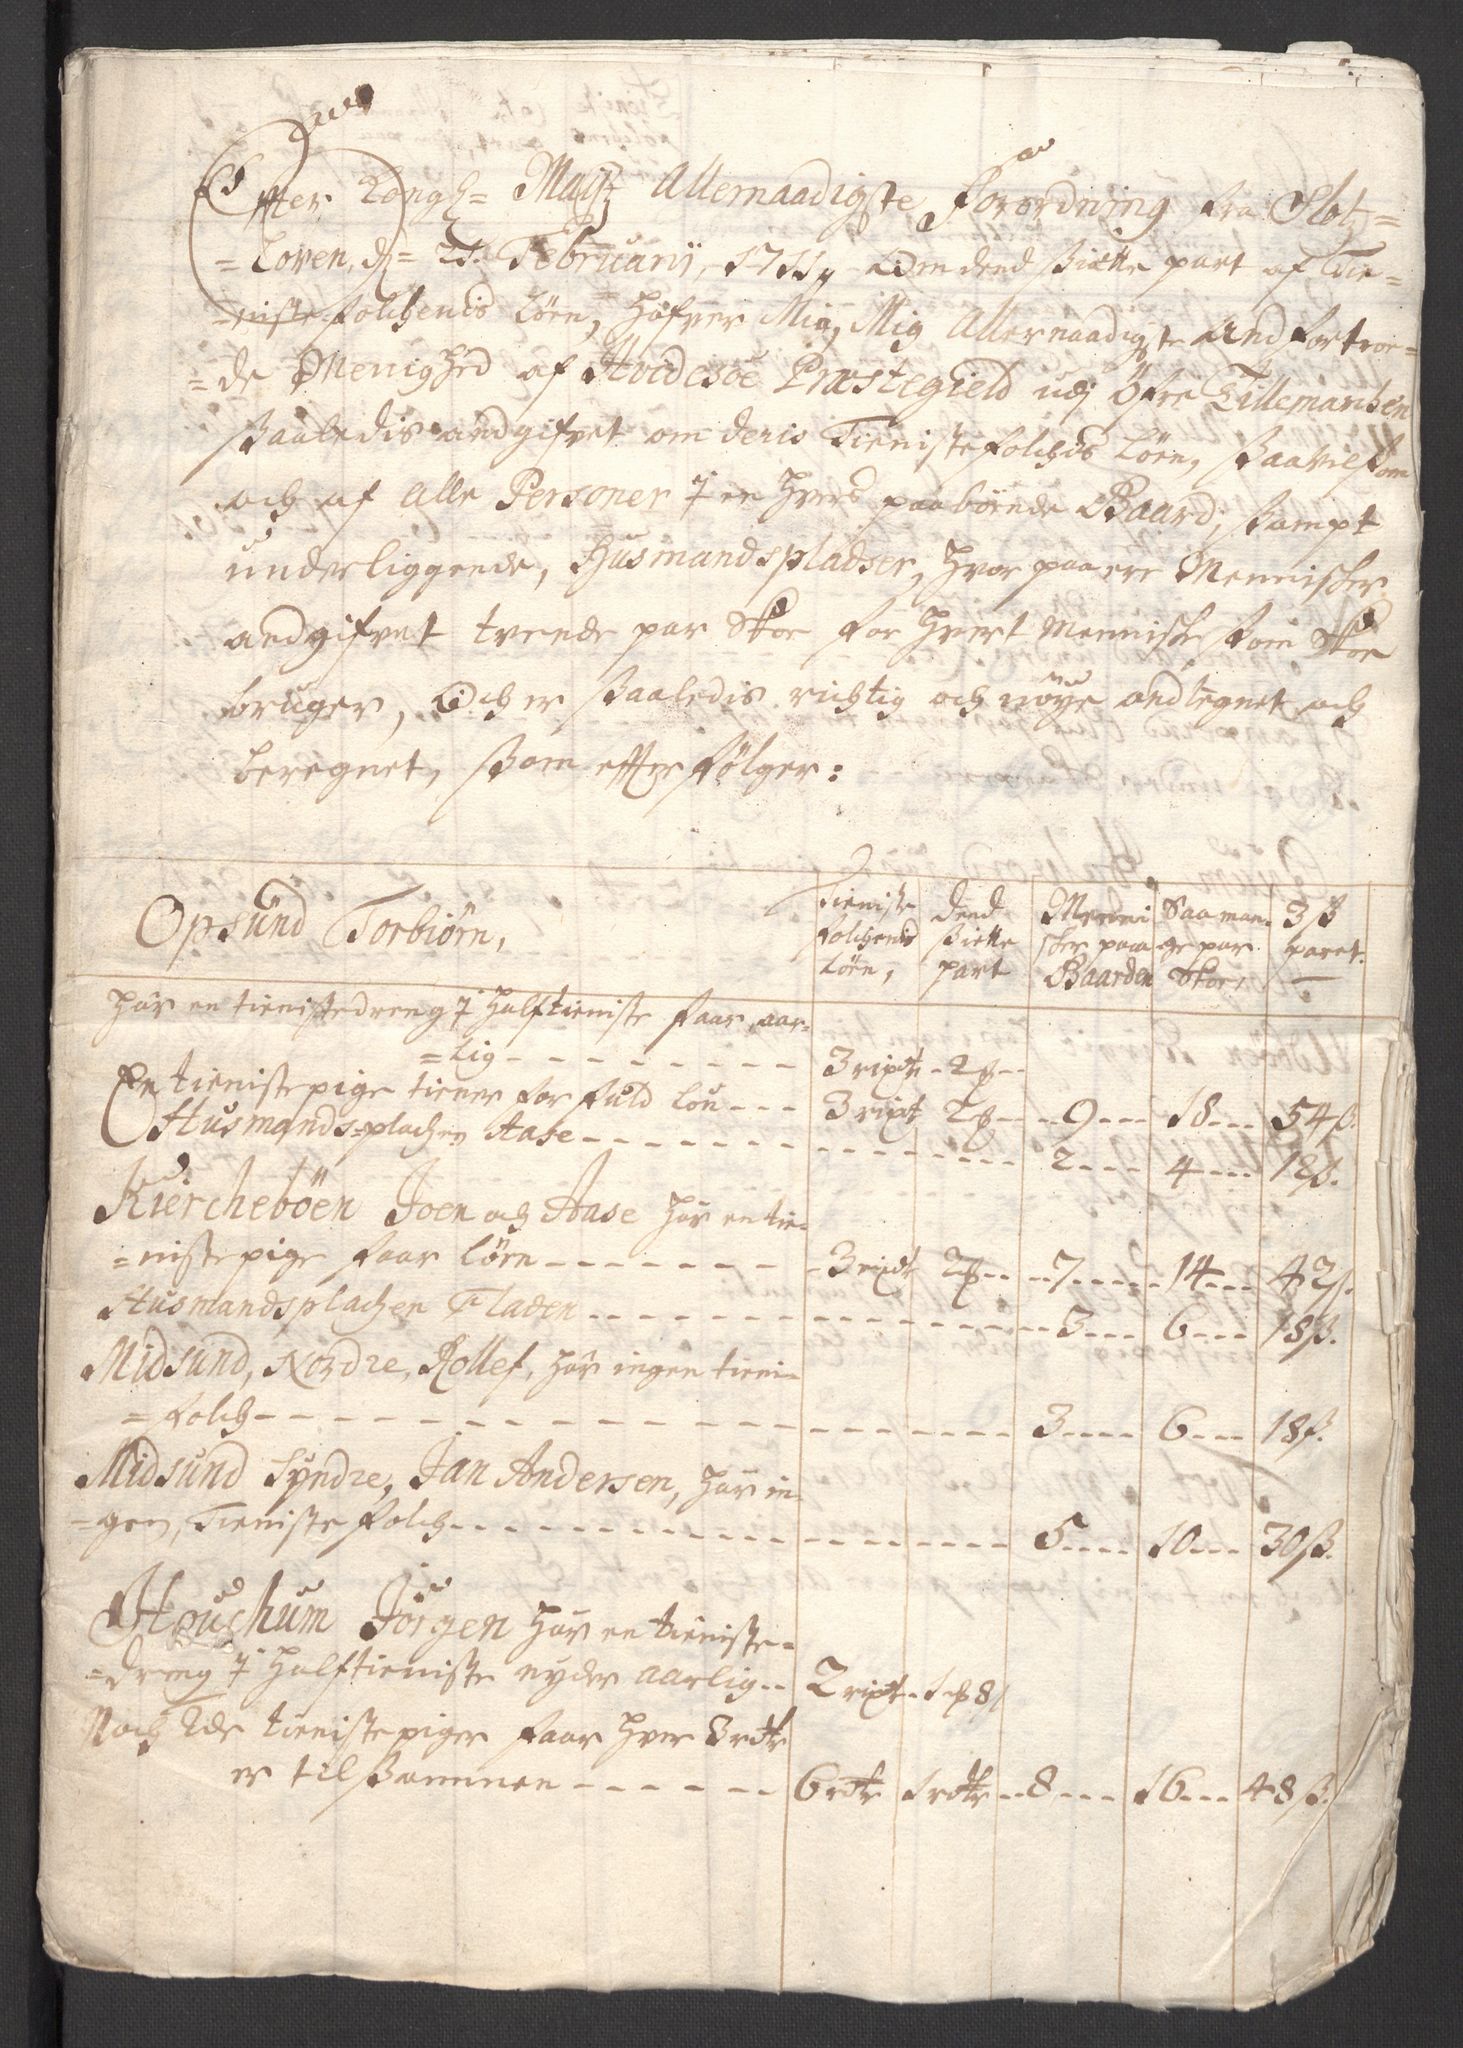 Effter Kongl= Maÿtz Allernaadigste Forordning fra Slotz=
=Loven, d= 21. Februarij, 1711, Om dend siette part af Tie-
=niste folchenis Löen, hafver Min, Mig Allernaadigste andfortroe=
=de Menighed af Hvidesöe Præstegield udj Öfre Tillemarchen
saaledis andgifvet om deris Tienistefolchis Löen, saavelsom
och af alle Personer i en hvers paaboende Gaard, sampt
underliggende, Husmandspladser, hvor paa ere Mennischer
andgifvet tvende par Skoe for hvert Mennische som Skoe
bruger, Och er saaledis richtig och nöye andtegnet och
beregnet, som effterfölger:
Opsund Torbiörn, Tieniste folchenis Löen, dend siette part Menni scher paa Gaarden Saa man- ge par Skoe, 3 ß paret.
har en tienistedreng i halftieniste faar aar-
=lig 3 rixdr 2 ß
En tienistepige tiener for fuld Lön 3 rixdr 2 ß 9 18 54 ß.
Husmands-plachen Aase 2 4 12 ß.
Kiercheböen Joen och Aase har en tie-
=nistepige faar Löen 3 rixdr 2 ß 7 14 42 ß.
Husmandsplachen Fladen 3 6 18 ß.
Midsund, Nordre, Rollef, har ingen tieni-
=folch 3 6 18 ß.
Midsund Syndre, Jan Andersen, har in-
=gen, Tieniste folch 5 10 30 ß.
Houchum Jörgen har en tieniste-
=dreng i halftieniste nyder aarlig 2 rixdr 1 8 ß
Noch 2de tienistepiger faar hver 3 rdr
er tilsammen 6 rdr 1 rdr 8 16 48 ß.